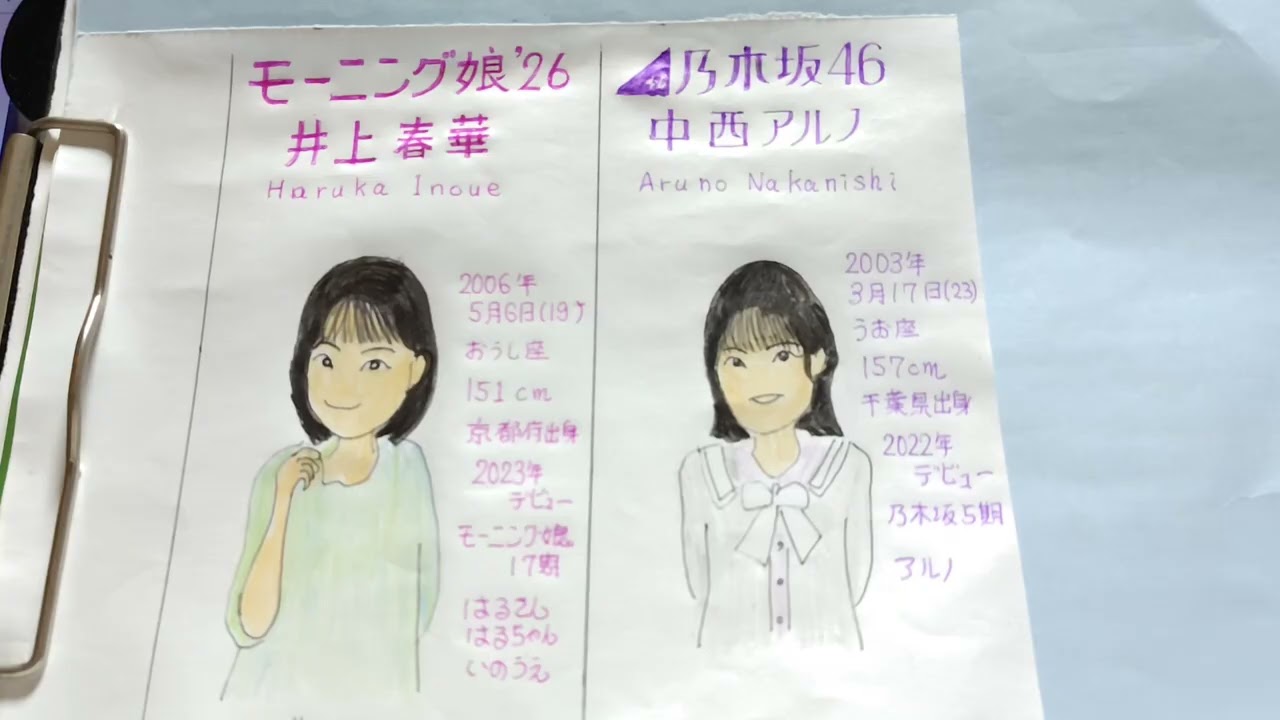 モーニング娘'26
井上春華
Haruka Inoue
2006年
5月6日(19)
おうし座
151cm
京都府出身
2023年
デビュー
モーニング娘
17期
はるさん
はるちゃん
いのうえ
乃木坂46
中西アルノ
Aruno Nakanishi
2003年
3月17日(23)
うお座
157cm
千葉県出身
2022年
デビュー
乃木坂5期
アルノ